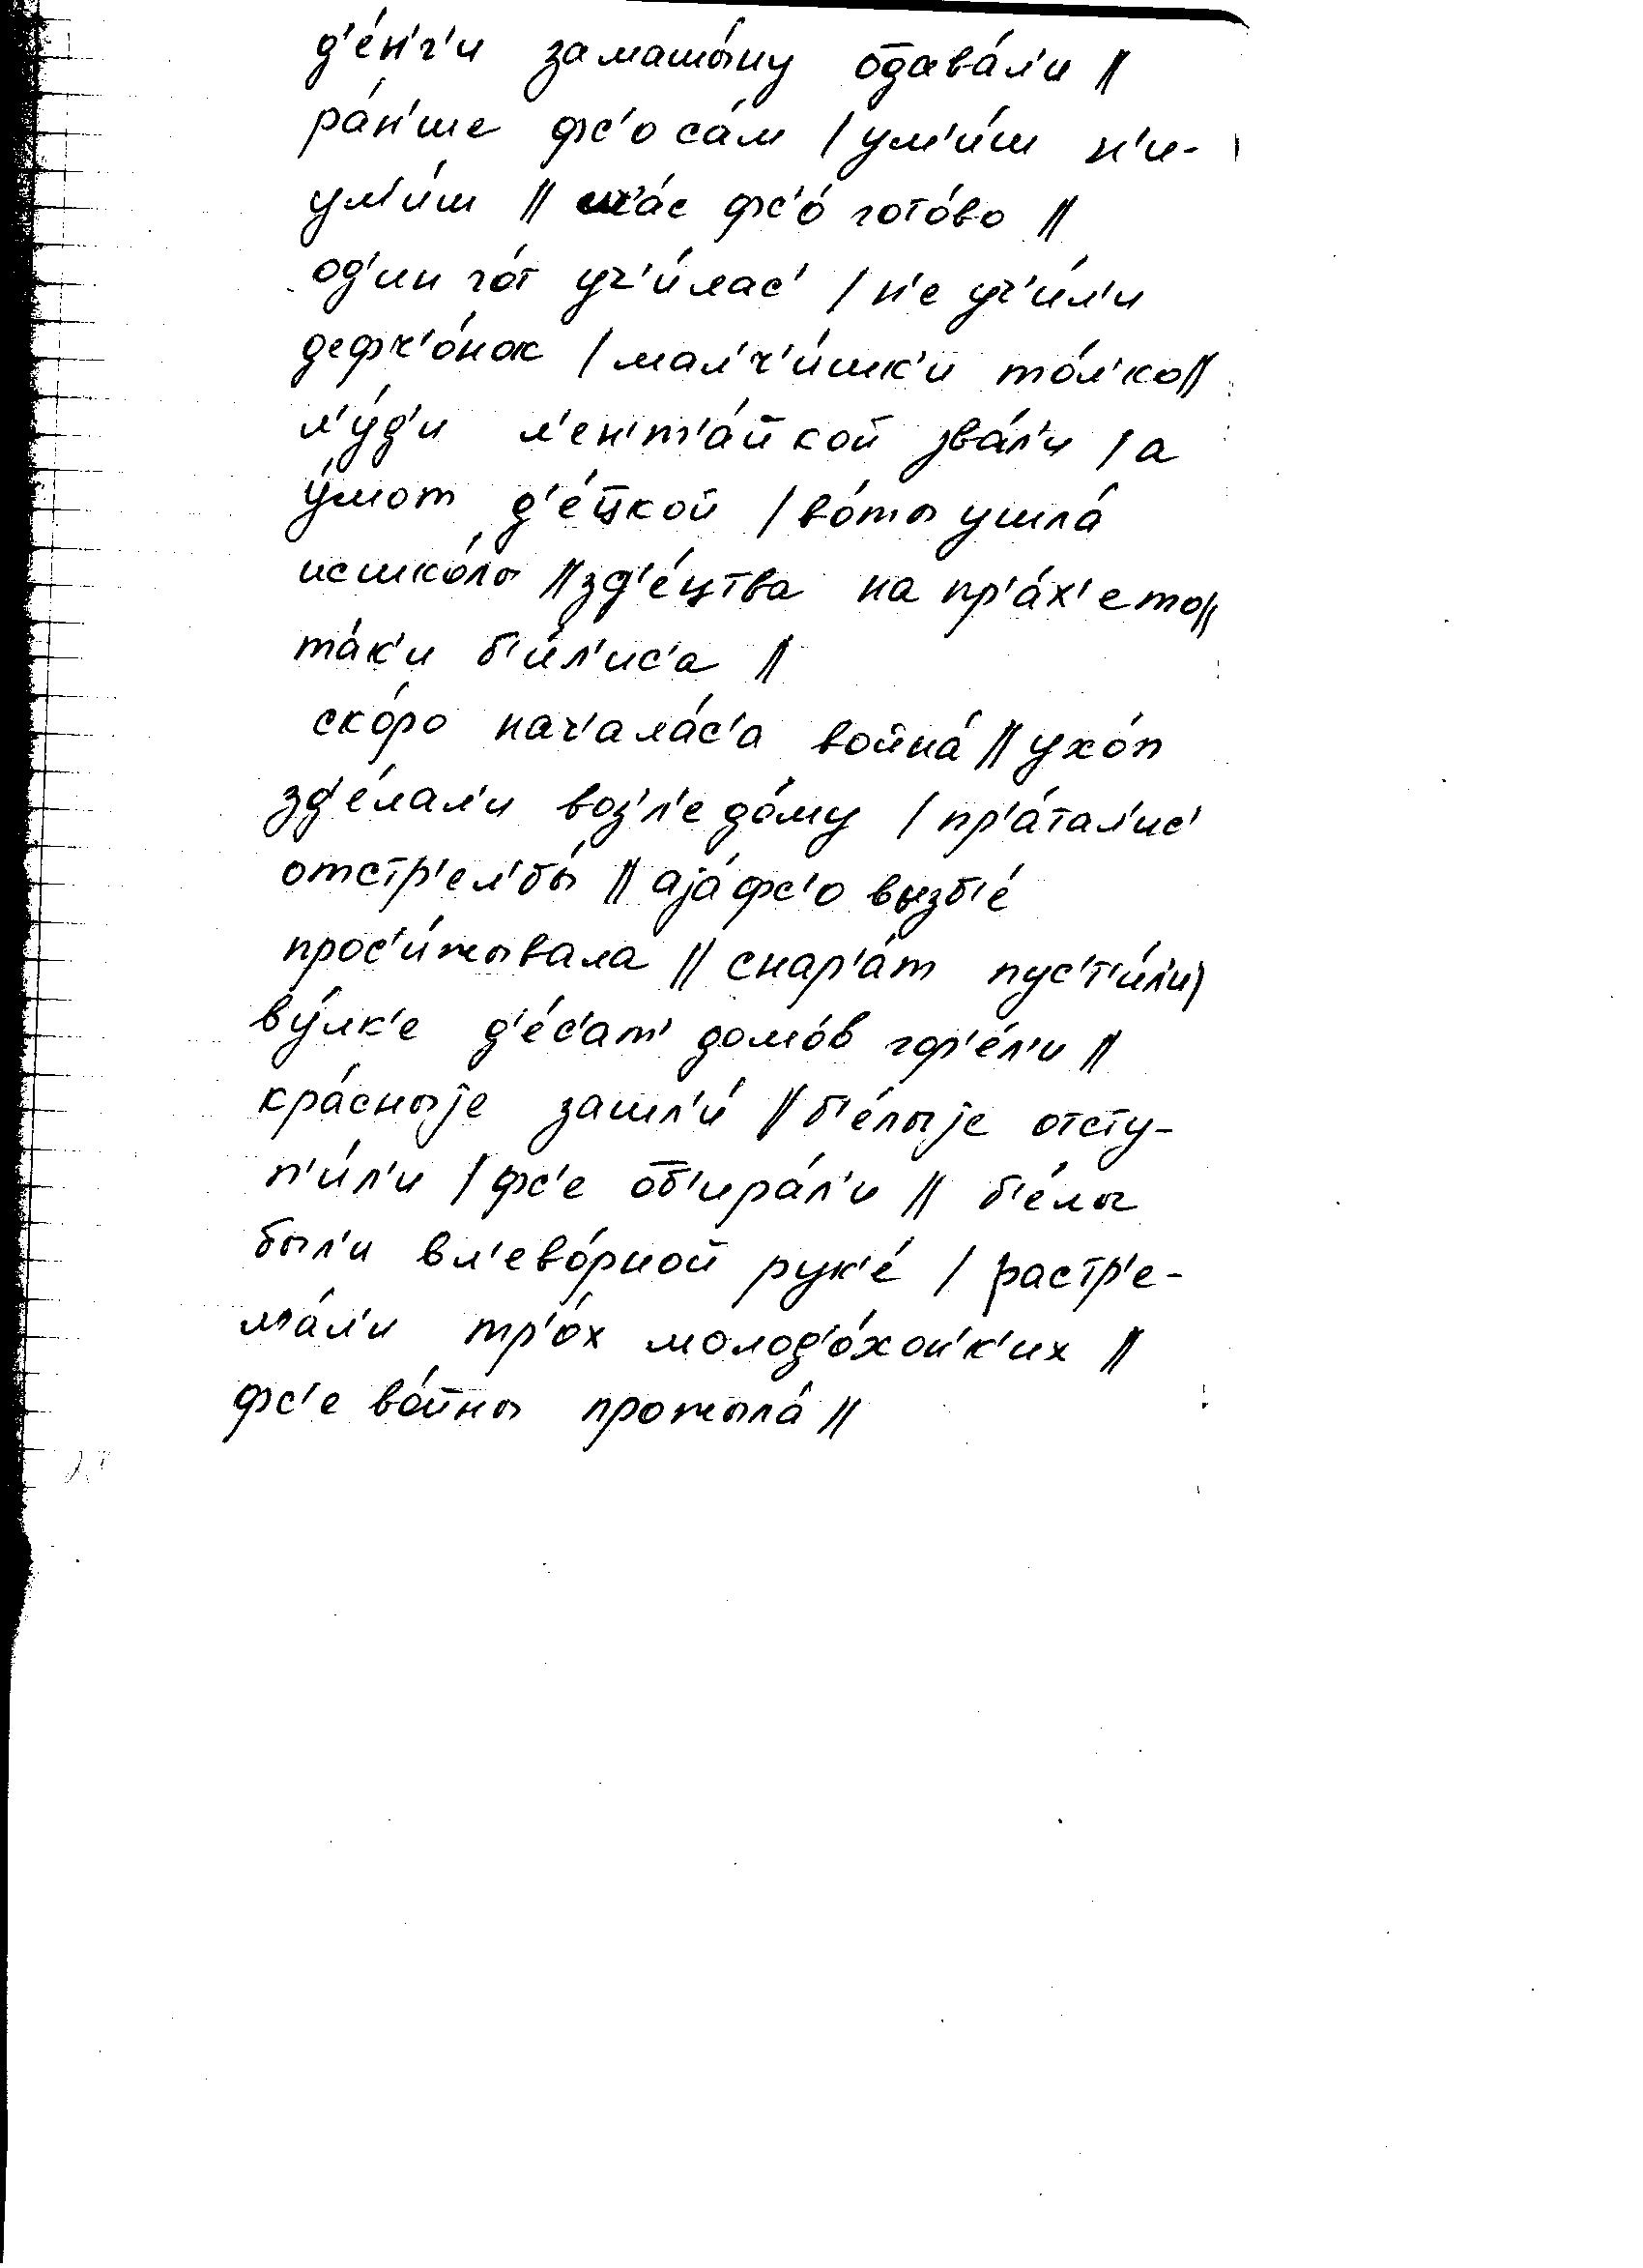 д'е́н'г'и замашы́ну о̄дава́л'и //
ра́н'ше фс'о са́м / ум'и́ш н'и-
ум'и́ш // ш'ас фс'о́ гото́во //
од'ин го́т уч'и́лас' / н'е уч'и́л'и
дефч'о́нок / мал'ч'и́шк'и то́л'ко //
л'у́д'и л'ен'т'а́йкой зва́л'и / а
у́мот д'е́цкой / во́ты ушла́
исшко́лы // зд'е́цтва на пр'а́х'ето //
та́к'и б'и́л'ис'а //
ско́ро нач'ала́с'а война́ // ухо́п
зд'е́лал'и воз'л'е до́му / пр'а́тал'ис'
отстр'ел'бы́ // аjа́фс'о вызб'е́
прос'и́жывала // снар'а́т пус'т'и́л'и /
ву́лк'е д'е́с'ат' домо́в гор'е́л'и //
кра́сныjе зашл'и́ // б'е́лыjе отсту-
п'и́л'и / фс'е об'ира́л'и // б'е́лы
был'и вл'ево́рной рук'е́ / растр'е-
л'а́л'и тр'о́х молод'о́хон'к'их //
фс'е во́йны прожыла́ //